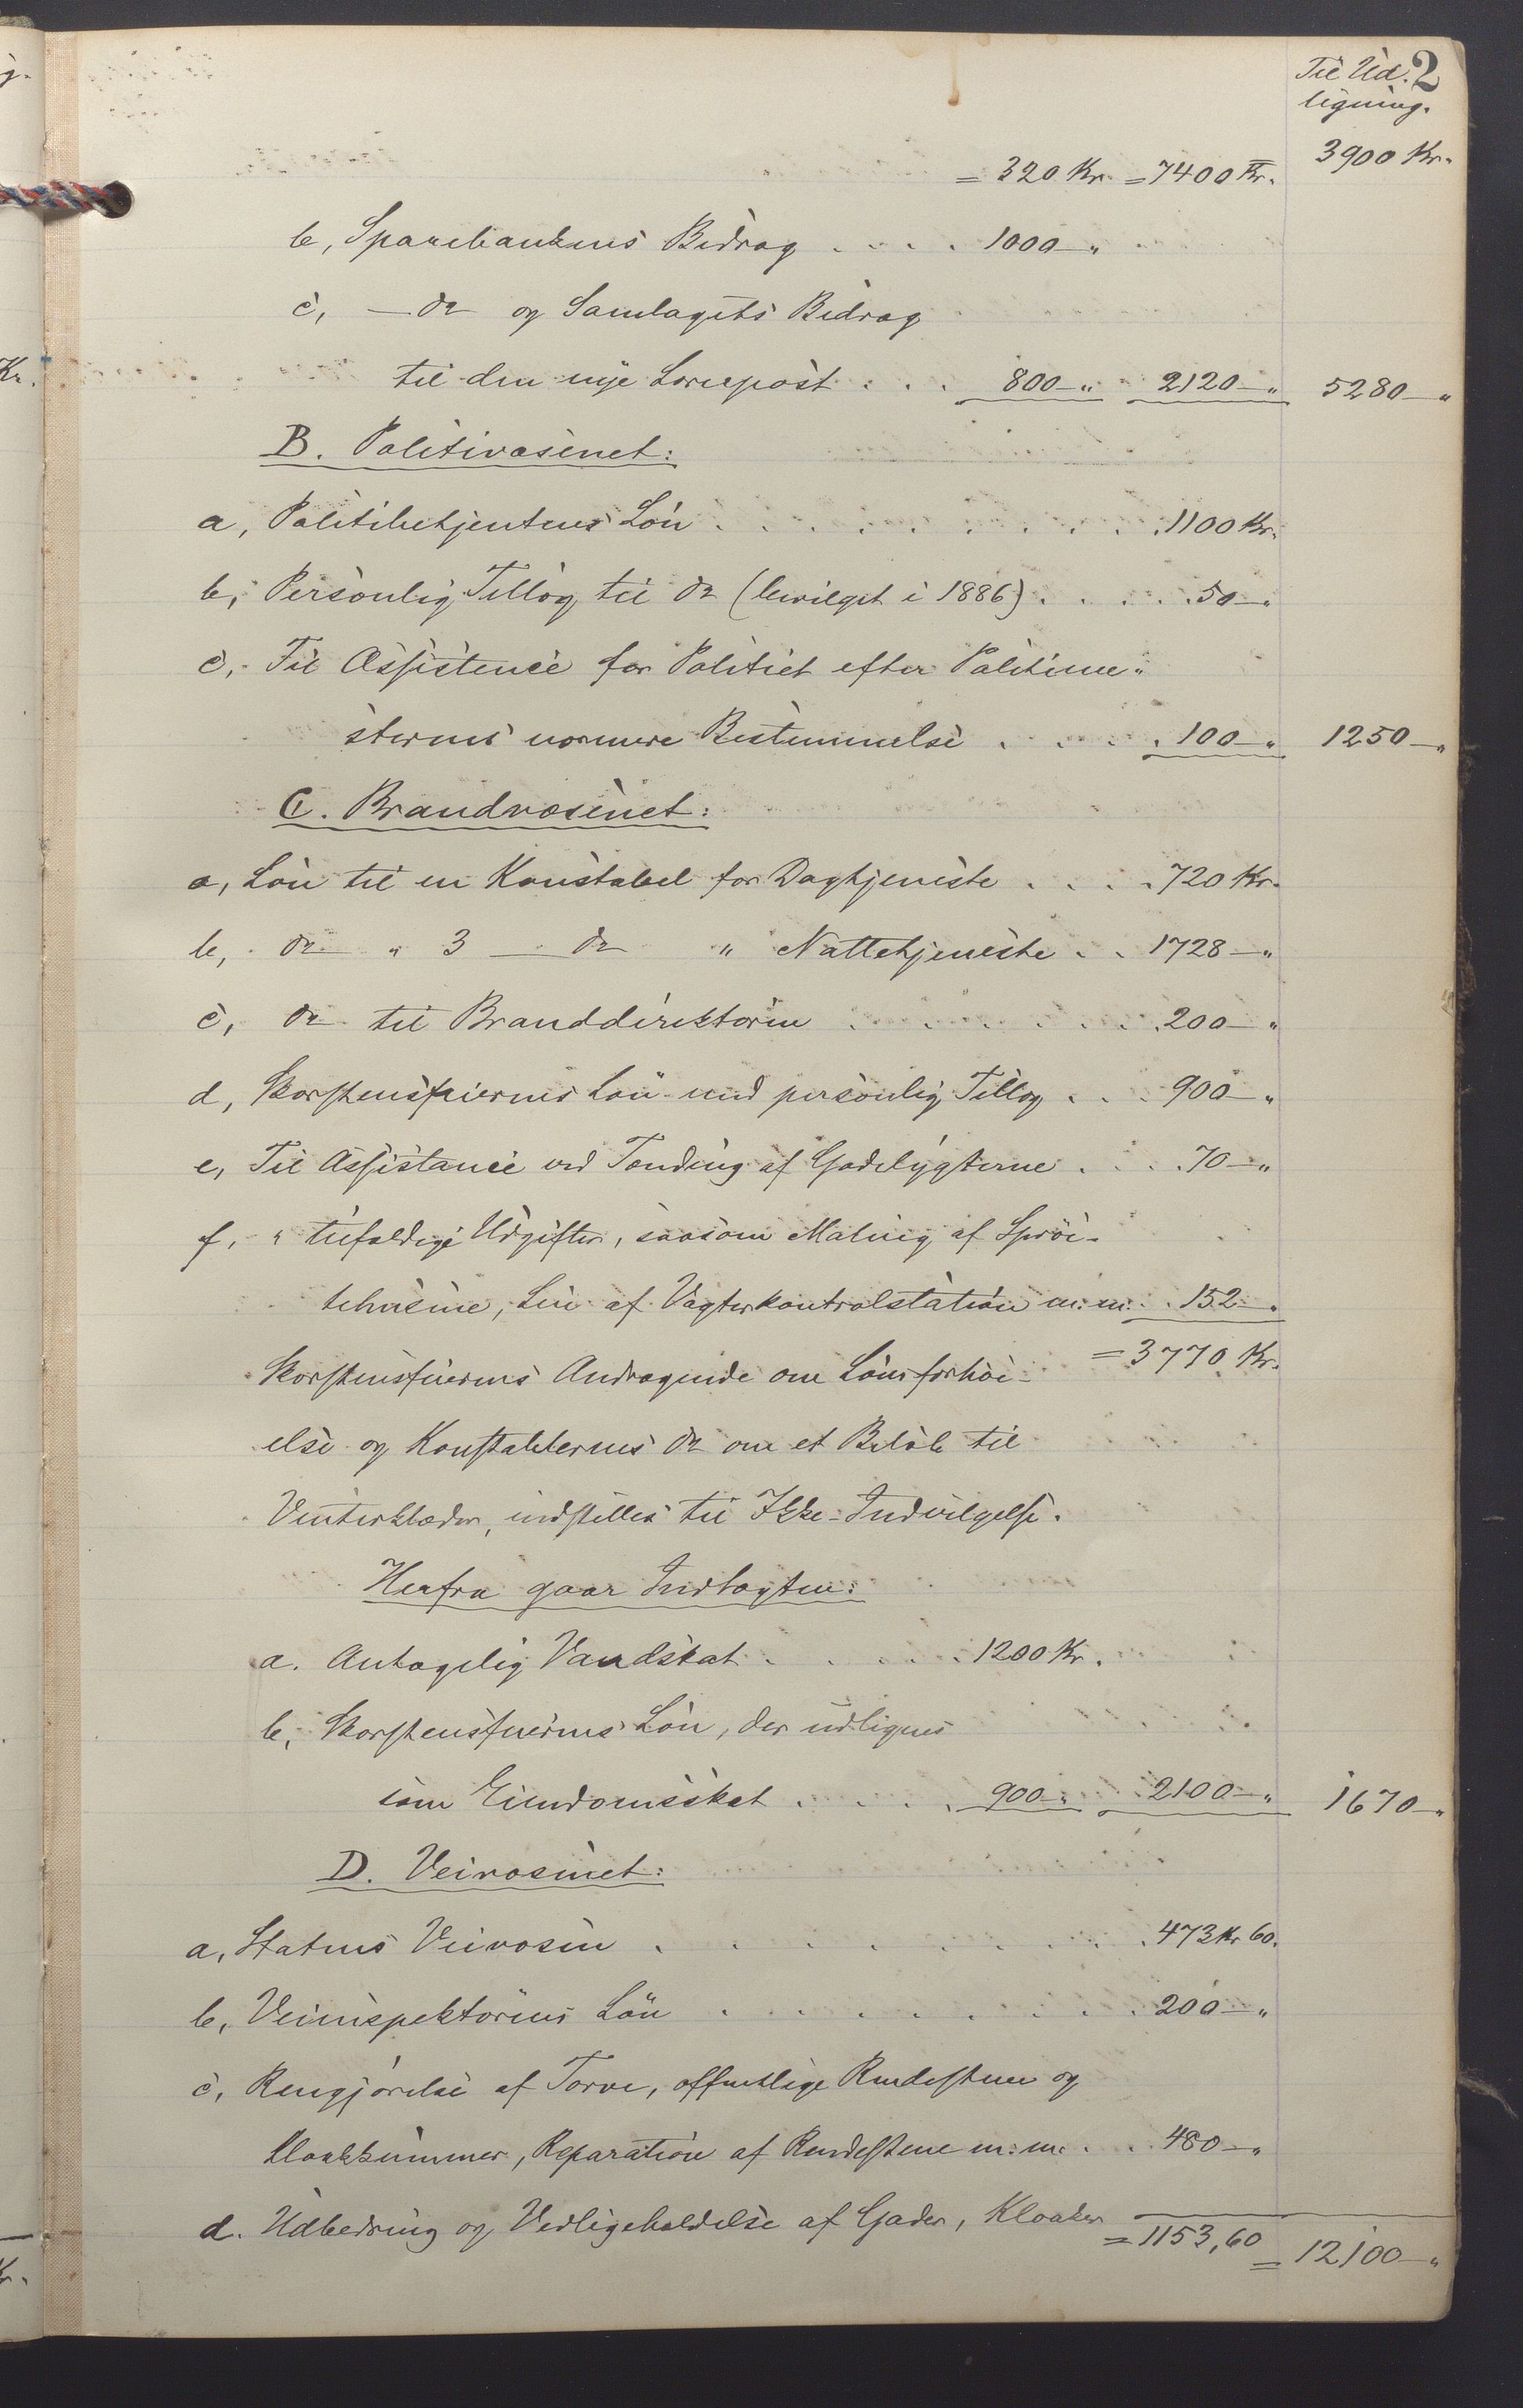 Til Ud- 2
ligning.
3900 Kr.
= 320 Kr. = 7400 Kr.
b, Sparebankens Bidrag . . . . 1000 - "
c, - do og Samlagets Bidrag
til den nye Lærepost . . . 800 - " 2120 - " 5280 - "
B. Politivæsenet:
a, Politibetjentens Løn . . . . . . . . . . . 1100 Kr.
b, Personlig Tillæg til do (bevilget i 1886) . . . . . 50 - "
c, Til Assistence for Politiet efter Politime-
sterens nærmere Bestemmelse . . . . . 100 - " 1250 - "
C. Brandvæsenet:
a, Løn til en Konstabel for Dagtjeneste . . . . 720 Kr.
b, do " 3 - do " Nattetjeneste . . 1728 - "
c, do til Branddirektøren . . . . . . . . 200 - "
d, Skorstensfeierens Løn med personlig Tillæg . . . 900 - "
e, Til Assistance ved Tænding af Gadelygterne . . . 70 - "
f, " tilfældige Udgifter, saasom Maling af Sprøi-
tehusene, Leie af Vægterkontrolstation m: m: . . 152 - "
= 3770 Kr.
Skorstensfeierens Andragende om Lønsforhøi-
else og Konstablernes do om et Beløb til
Vinterklæder, indstilles til Ikke-Indvilgelse.
Herfra gaar Indtægten:
a. Antagelig Vandskat . . . . . 1200 Kr.
b, Skorstensfeierens Løn, der udlignes
som Eiendomsskat . . . . 900 - " 2100 - " 1670 - "
D. Veivæsenet:
a, Statens Veivæsen . . . . . . . . . 473 Kr 60.
b, Veiinspektørens Løn . . . . . . . . 200 - "
c, Rengjørelse af Torve, offentlige Rendestene og
Kloakkummer, Reparation af Rendestene m: m: . . 480 - "
d. Udbedring og Vedligeholdelse af Gader, Kloaker
= 1153,60 = 12100 - "